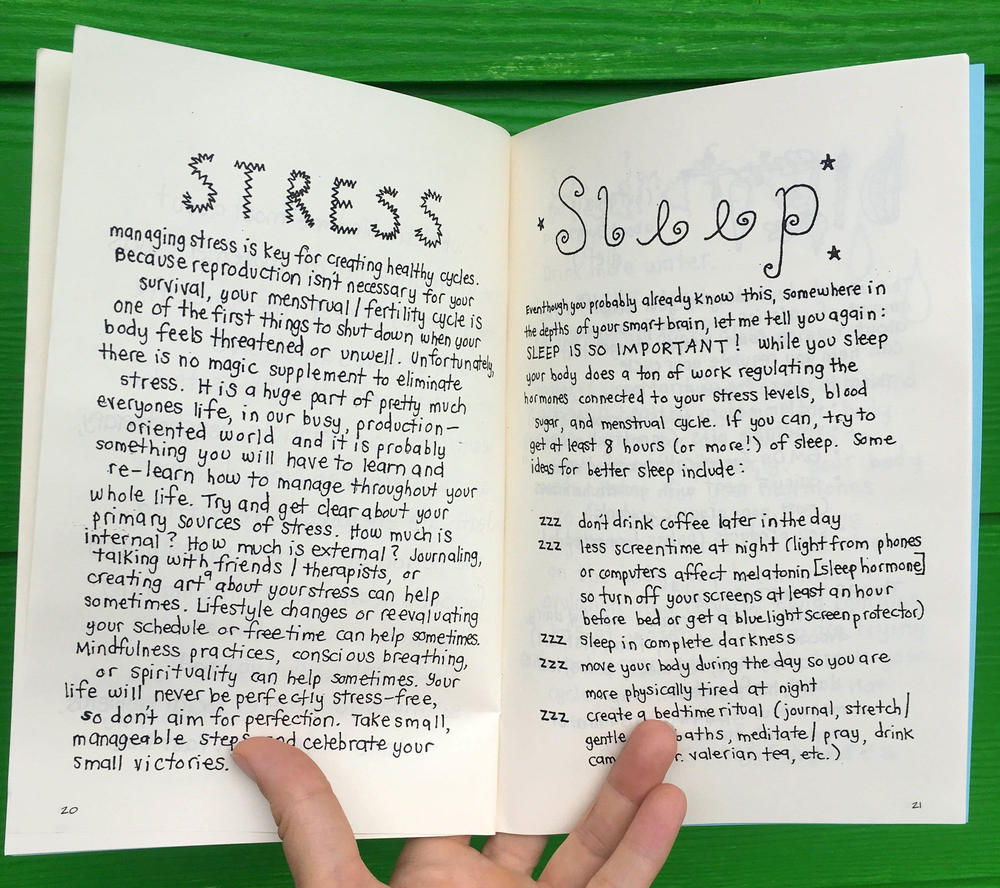 STRESS
managing stress is key for creating healthy cycles.
Because reproduction isn't necessary for your
survival, your menstrual / fertility cycle is
one of the first things to shut down when your
body feels threatened or unwell. Unfortunately,
there is no magic supplement to eliminate
stress. It is a huge part of pretty much
everyones life, in our busy, production-
oriented world and it is probably
something you will have to learn and
re-learn how to manage throughout your
whole life. Try and get clear about your
primary sources of stress. How much is
internal? How much is external? Journaling,
talking with friends / therapists, or
creating art about your stress can help
sometimes. Lifestyle changes or reevaluating
your schedule or free time can help sometimes.
Mindfulness practices, conscious breathing,
or spirituality can help sometimes. Your
life will never be perfectly stress-free,
so don't aim for perfection. Take small,
manageable steps and celebrate your
small victories.
20
Sleep
Even though you probably already know this, somewhere in
the depths of your smart brain, let me tell you again:
SLEEP IS SO IMPORTANT! While you sleep
your body does a ton of work regulating the
hormones connected to your stress levels, blood
sugar, and menstrual cycle. If you can, try to
get at least 8 hours (or more!) of sleep. Some
ideas for better sleep include:
zzz don't drink coffee later in the day
zzz less screentime at night (light from phones
or computers affect melatonin [sleep hormone]
so turn off your screens at least an hour
before bed or get a blue light screen protector)
zzz sleep in complete darkness
zzz move your body during the day so you are
more physically tired at night
zzz create a bedtime ritual (journal, stretch /
gentle baths, meditate / pray, drink
valerian tea, etc.)
21